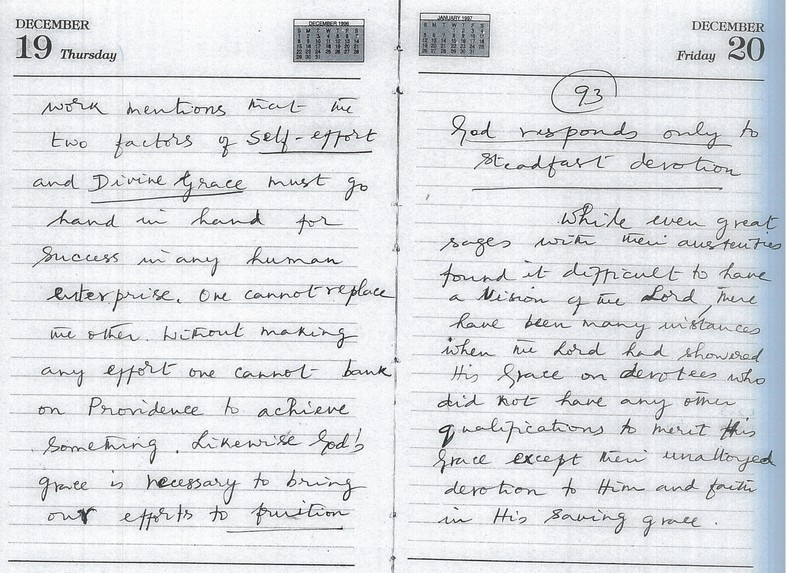 DECEMBER
19 Thursday
DECEMBER 1996
work mentions that the
two factors of self-effort
and Divine Grace must go
hand in hand for
success in any human
enterprise. One cannot replace
the other. Without making
any effort one cannot bank
on Providence to achieve
something. Likewise God's
grace is necessary to bring
our efforts to fruition
JANUARY 1997
DECEMBER
Friday 20
93
God responds only to
steadfast devotion
While even great
sages with their austerities
found it difficult to have
a vision of the Lord, there
have been many instances
when the Lord had showered
His Grace on devotees who
did not have any other
qualifications to merit this
Grace except their unalloyed
devotion to Him and faith
in His saving grace.